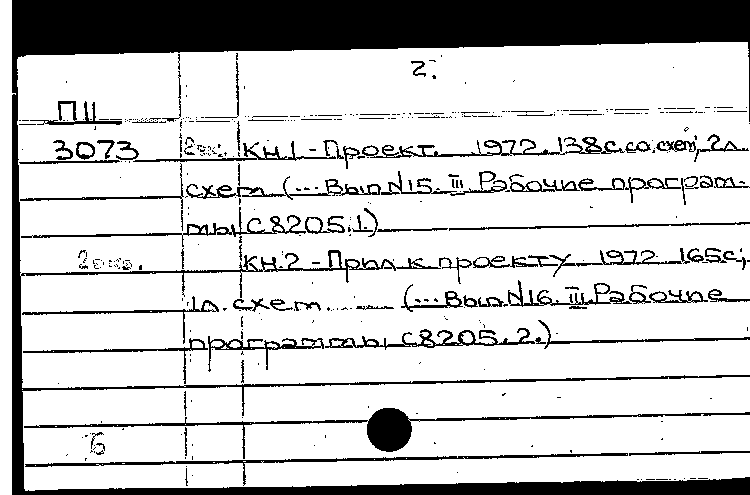 2.
ПII
3073 2экз. Кн.1 - Проект. 1972. 138с.со схем; 2л.
схем (... Вып N15. III. Рабочие програм-
мы С8205.1.)
2экз. Кн.2 - Прил. к проекту 1972 165с;
1л. схем. (... Вып. N16. III. Рабочие
программы С8205.2.)
6